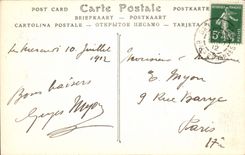 POST CARD Carte Postale POSTKARTE
BRIEFKAART POSTKAART
CARTOLINA POSTALE ОТКРЫТОЕ ПИСЬМО TARJETA
le mercredi 10 Juillet
1912
Bons baisers
Georges Myon
Monsieur
E. Myon
9 Rue Barye
Paris
17e